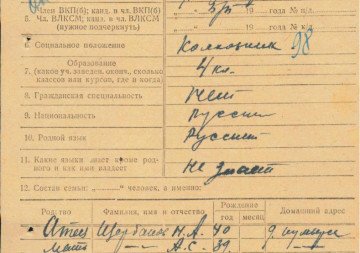 Член ВКП(б); канд. в чл. ВКП(б)
19 года № п/б.
5. Чл. ВЛКСМ; канд. в чл. ВЛКСМ
(нужное подчеркнуть)
19 года № к/б
6. Социальное положение
Колхозник 98
7. Образование
(какое уч. заведен. оконч., сколько классов или курсов, где и когда)
4 кл.
8. Гражданская специальность
Нет
9. Национальность
Русский
10. Родной язык
Русский
11. Какие языки знает кроме родного и как ими владеет
Не знает
12. Состав семьи: „——“ человек, а именно:
Родство Фамилия, имя и отчество Рождение год месяц Домашний адрес
Отец Щербаков Н.А. 40
Мать —〃— А.С. 39